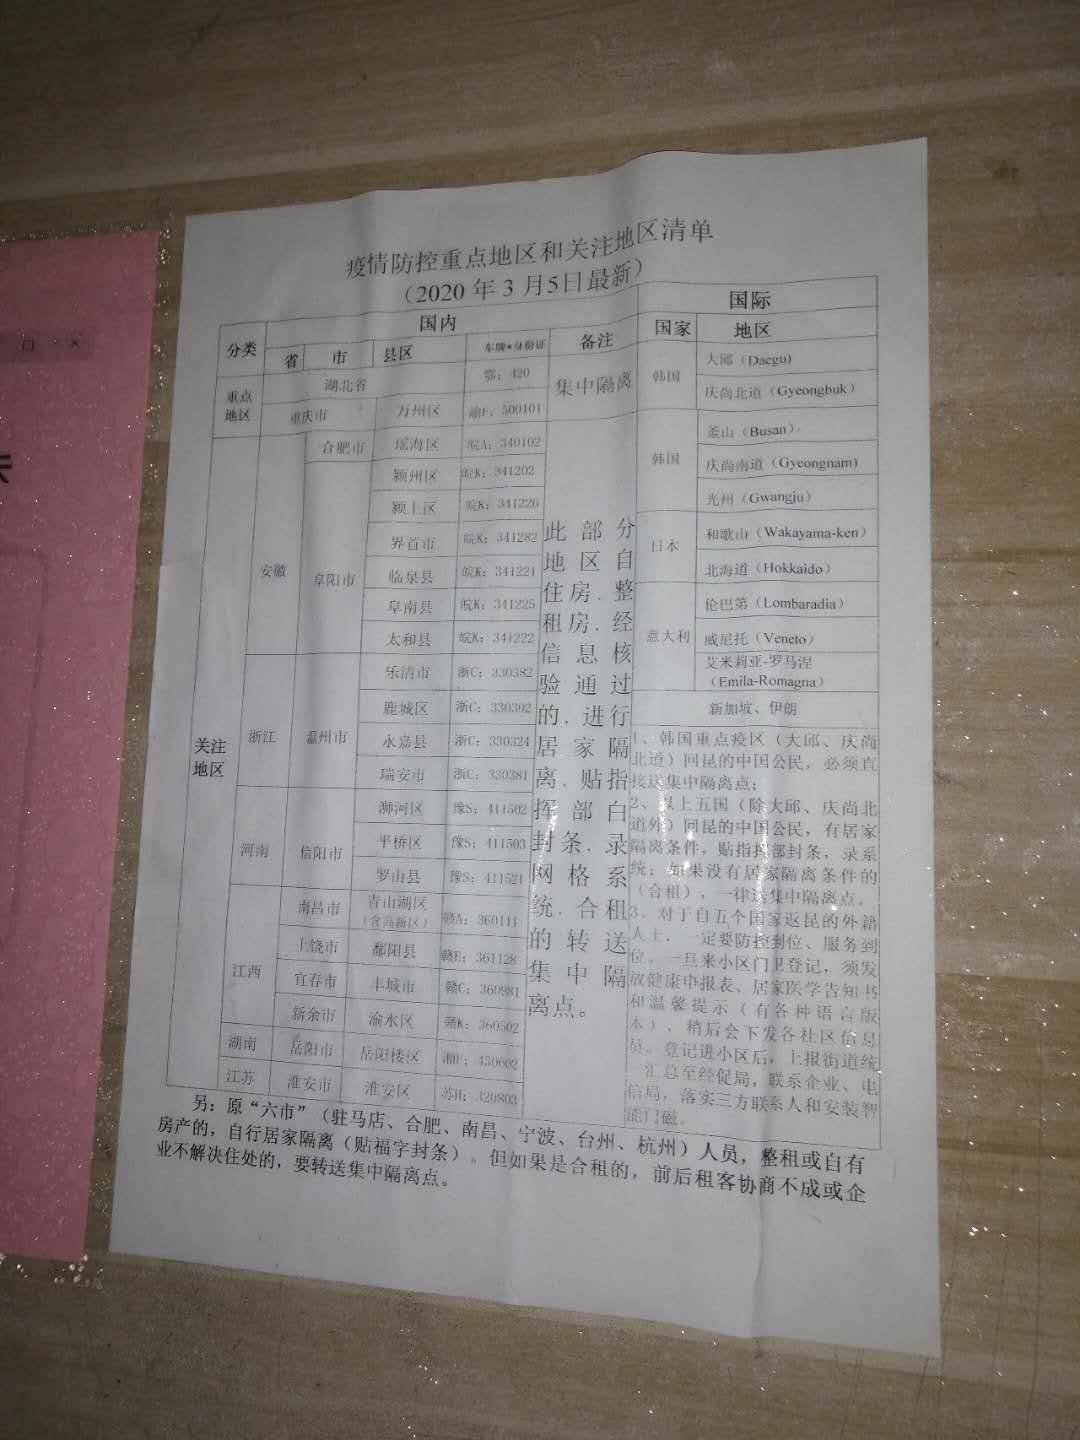 疫情防控重点地区和关注地区清单
（2020 年 3 月5日最新）
分类 国内 备注 国际
省 市 县区 车牌+身份证 国家 地区
重点地区 湖北省 鄂：420 集中隔离 韩国 大邱（Daegu）
重庆市 万州区 渝F：500101 庆尚北道（Gyeongbuk）
关注地区 安徽 合肥市 瑶海区 皖A：340102 韩国 釜山（Busan）
阜阳市 颍州区 皖K：341202 庆尚南道（Gyeongnam）
颍上区 皖K：341226 光州（Gwangju）
界首市 皖K：341282 日本 和歌山（Wakayama-ken）
临泉县 皖K：341221 北海道（Hokkaido）
阜南县 皖K：341225 意大利 伦巴第（Lombaradia）
太和县 皖K：341222 威尼托（Veneto）
浙江 温州市 乐清市 浙C：330382 艾米莉亚-罗马涅
（Emila-Romagna）
鹿城区 浙C：330302 新加坡、伊朗
永嘉县 浙C：330324
瑞安市 浙C：330381
河南 信阳市 浉河区 豫S：411502
平桥区 豫S：411503
罗山县 豫S：411521
江西 南昌市 青山湖区
（含高新区） 赣A：360111
上饶市 鄱阳县 赣E：361128
宜春市 丰城市 赣C：360981
新余市 渝水区 赣K：360502
湖南 岳阳市 岳阳楼区 湘F：430602
江苏 淮安市 淮安区 苏H：320803
此部分
地区自
住房．整
租房．经
信息核
验通过
的．进行
居家隔
离．贴指
挥部白
封条．录
网格系
统．合租
的转送
集中隔
离点。
1、韩国重点疫区（大邱、庆尚
北道）回昆的中国公民，必须直
接送集中隔离点；
2、以上五国（除大邱、庆尚北
道外）回昆的中国公民，有居家
隔离条件，贴指挥部封条，录系
统；如果没有居家隔离条件的
（合租），一律送集中隔离点。
3、对于自五个国家返昆的外籍
人士，一定要防控到位、服务到
位。一旦来小区门卫登记，须发
放健康申报表、居家医学告知书
和温馨提示（有各种语言版
本），稍后会下发各社区信息
员。登记进小区后，上报街道统
一汇总至经促局，联系企业、电
信局，落实三方联系人和安装智
能门磁。
另：原“六市”（驻马店、合肥、南昌、宁波、台州、杭州）人员，整租或自有
房产的，自行居家隔离（贴福字封条）。但如果是合租的，前后租客协商不成或企
业不解决住处的，要转送集中隔离点。